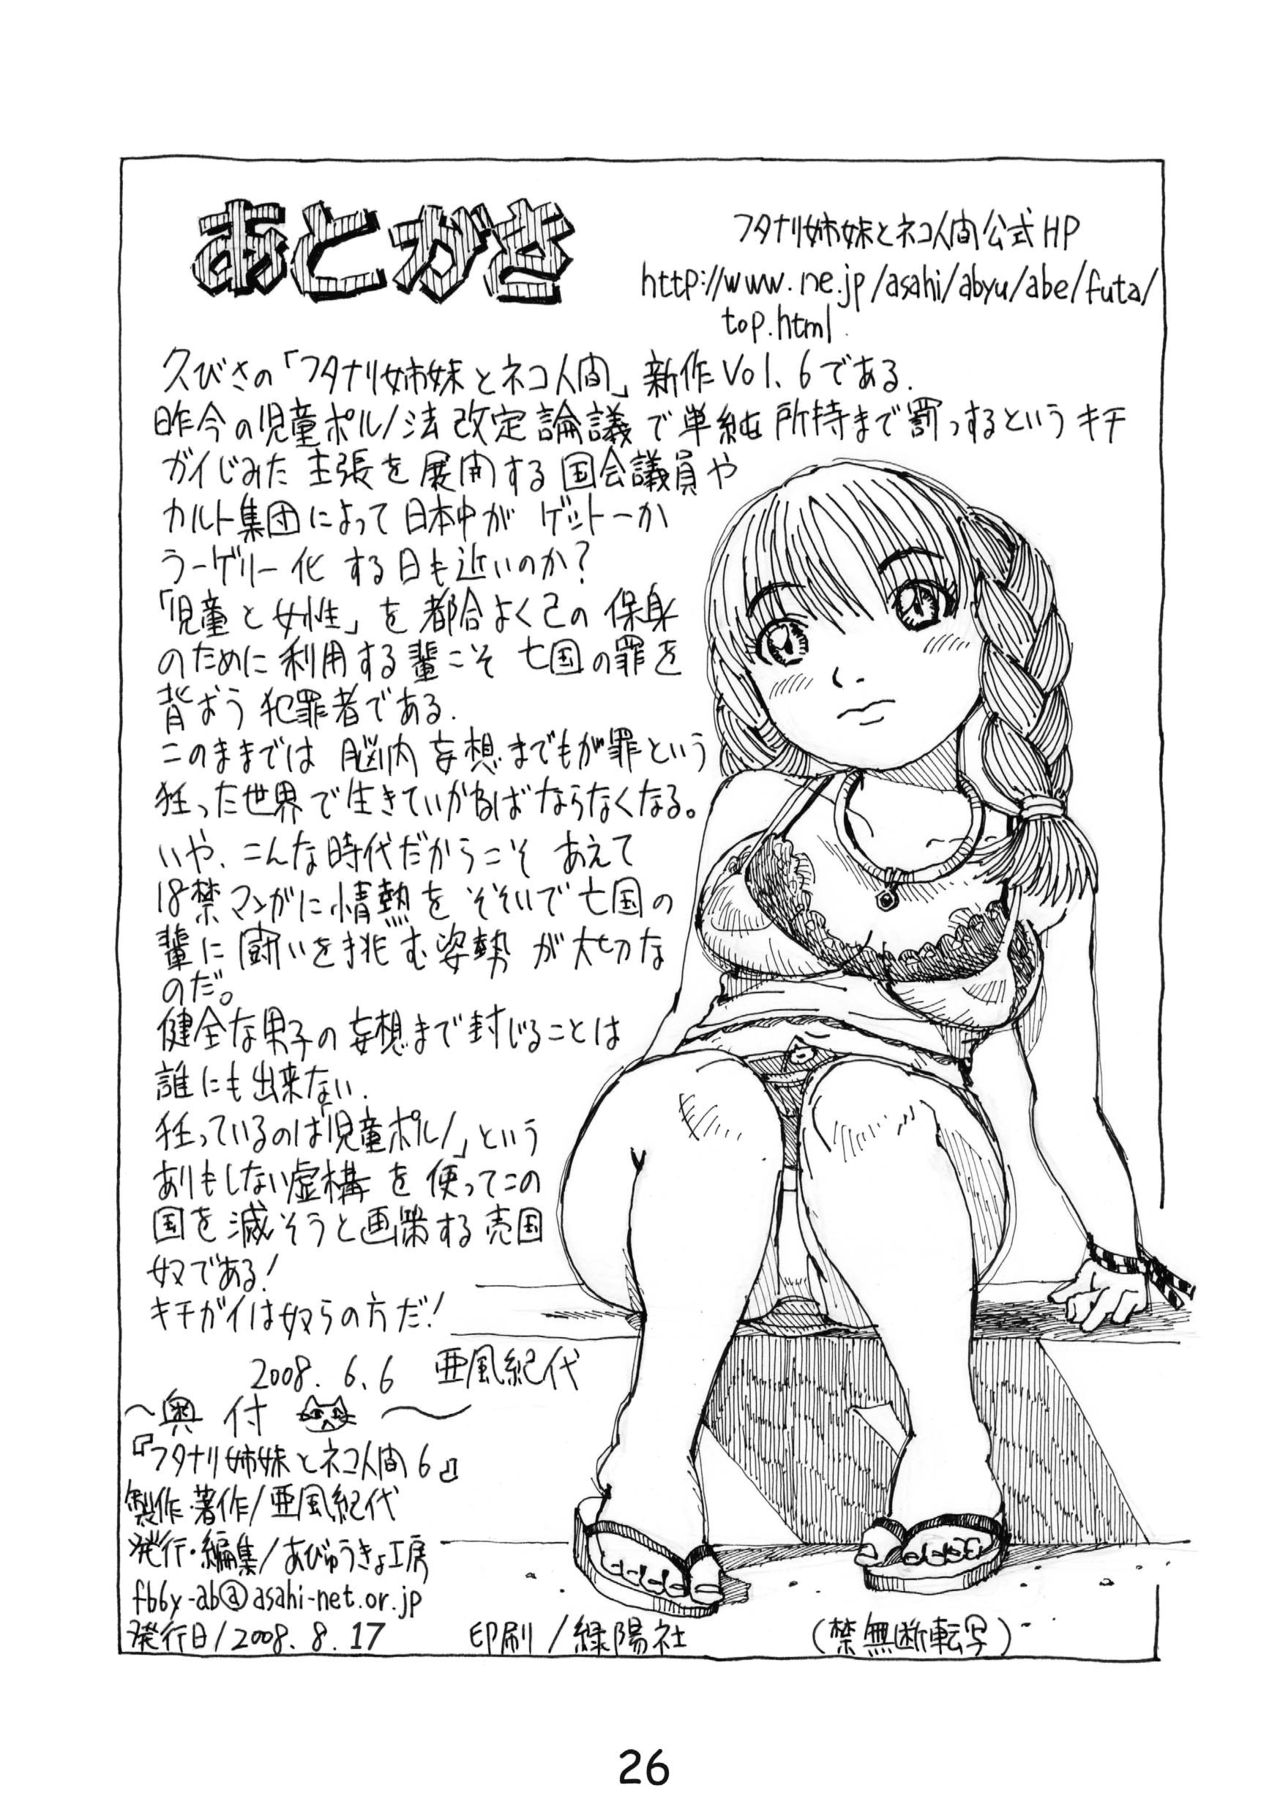 あとがき
フタナリ姉妹とネコ人間公式HP
http://www.ne.jp/asahi/abyu/abe/futa/
top.html
久びさの「フタナリ姉妹とネコ人間」新作Vol.6である.
昨今の児童ポルノ法改定論議で単純所持まで罰っするというキチ
ガイじみた主張を展開する国会議員や
カルト集団によって日本中がゲットーか
ラーゲリー化する日も近いのか?
「児童と女性」を都合よく己の保身
のために利用する輩こそ亡国の罪を
背おう犯罪者である.
このままでは脳内妄想までもが罪という
狂った世界で生きていかねばならなくなる。
いや、こんな時代だからこそあえて
18禁マンガに情熱をそそいで亡国の
輩に闘いを挑む姿勢が大切な
のだ。
健全な男子の妄想まで封じることは
誰にも出来ない.
狂っているのは「児童ポルノ」という
ありもしない虚構を使ってこの
国を滅そうと画策する売国
奴である!
キチガイは奴らの方だ!
2008.6.6 亜風紀代
~奥付~
『フタナリ姉妹とネコ人間6』
製作・著作/亜風紀代
発行・編集/あびゅうきょ工房
fb6y-ab@asahi-net.or.jp
発行日/2008.8.17
印刷/緑陽社
(禁無断転写)
26